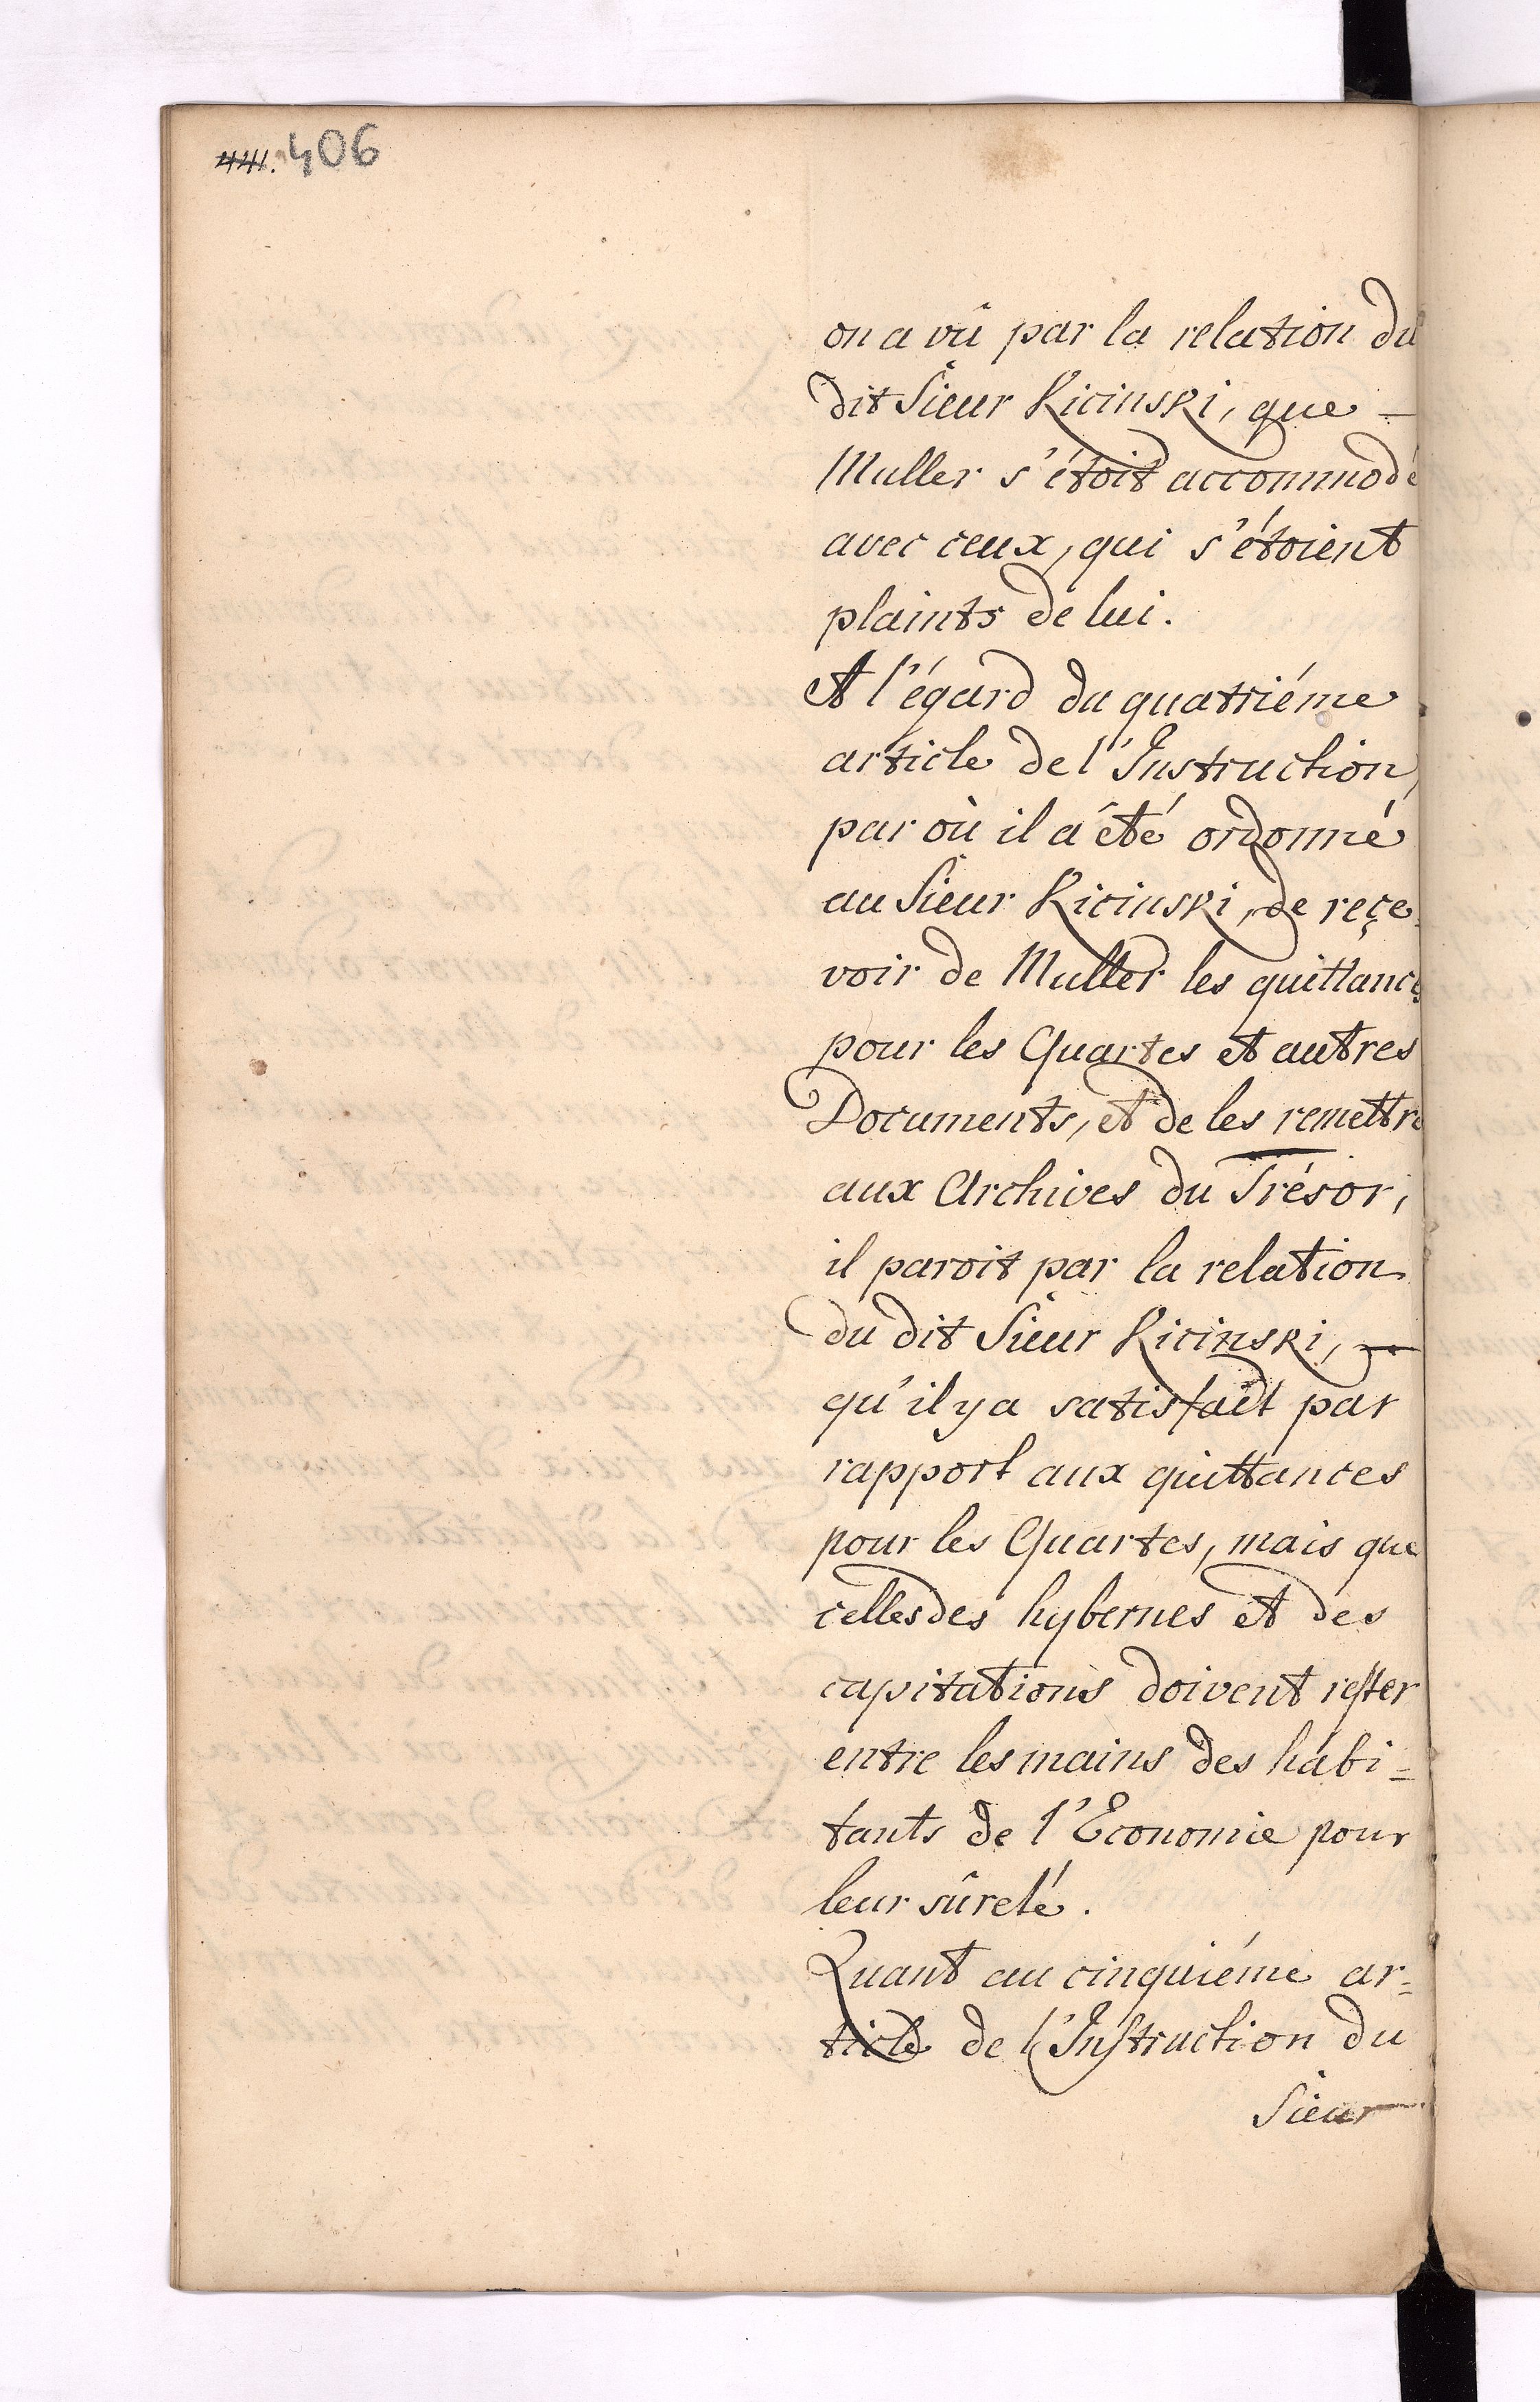 441. 406
on a vû par la relation du
dit Sieur Kicinski, que –
Muller s'étoit accommodé
avec ceux, qui s'étoient
plaints de lui.
A l'égard du quatriéme
article de l'Instruction,
par où il a été ordonné
au Sieur Kicinski, de reçe
voir de Muller les quittances
pour les Quartes et autres
Documents, et de les remettre
aux Archives du Trésor,
il paroit par la relation
du dit Sieur Kicinski, —
qu'il y a satisfait par
rapport aux quittances
pour les Quartes, mais que
celles des hybernes et des
capitations doivent rester
entre les mains des habi=
tants de l'Economie pour
leur sûreté.
Quant au cinquiéme ar=
ticle de l'Instruction du
Sieur